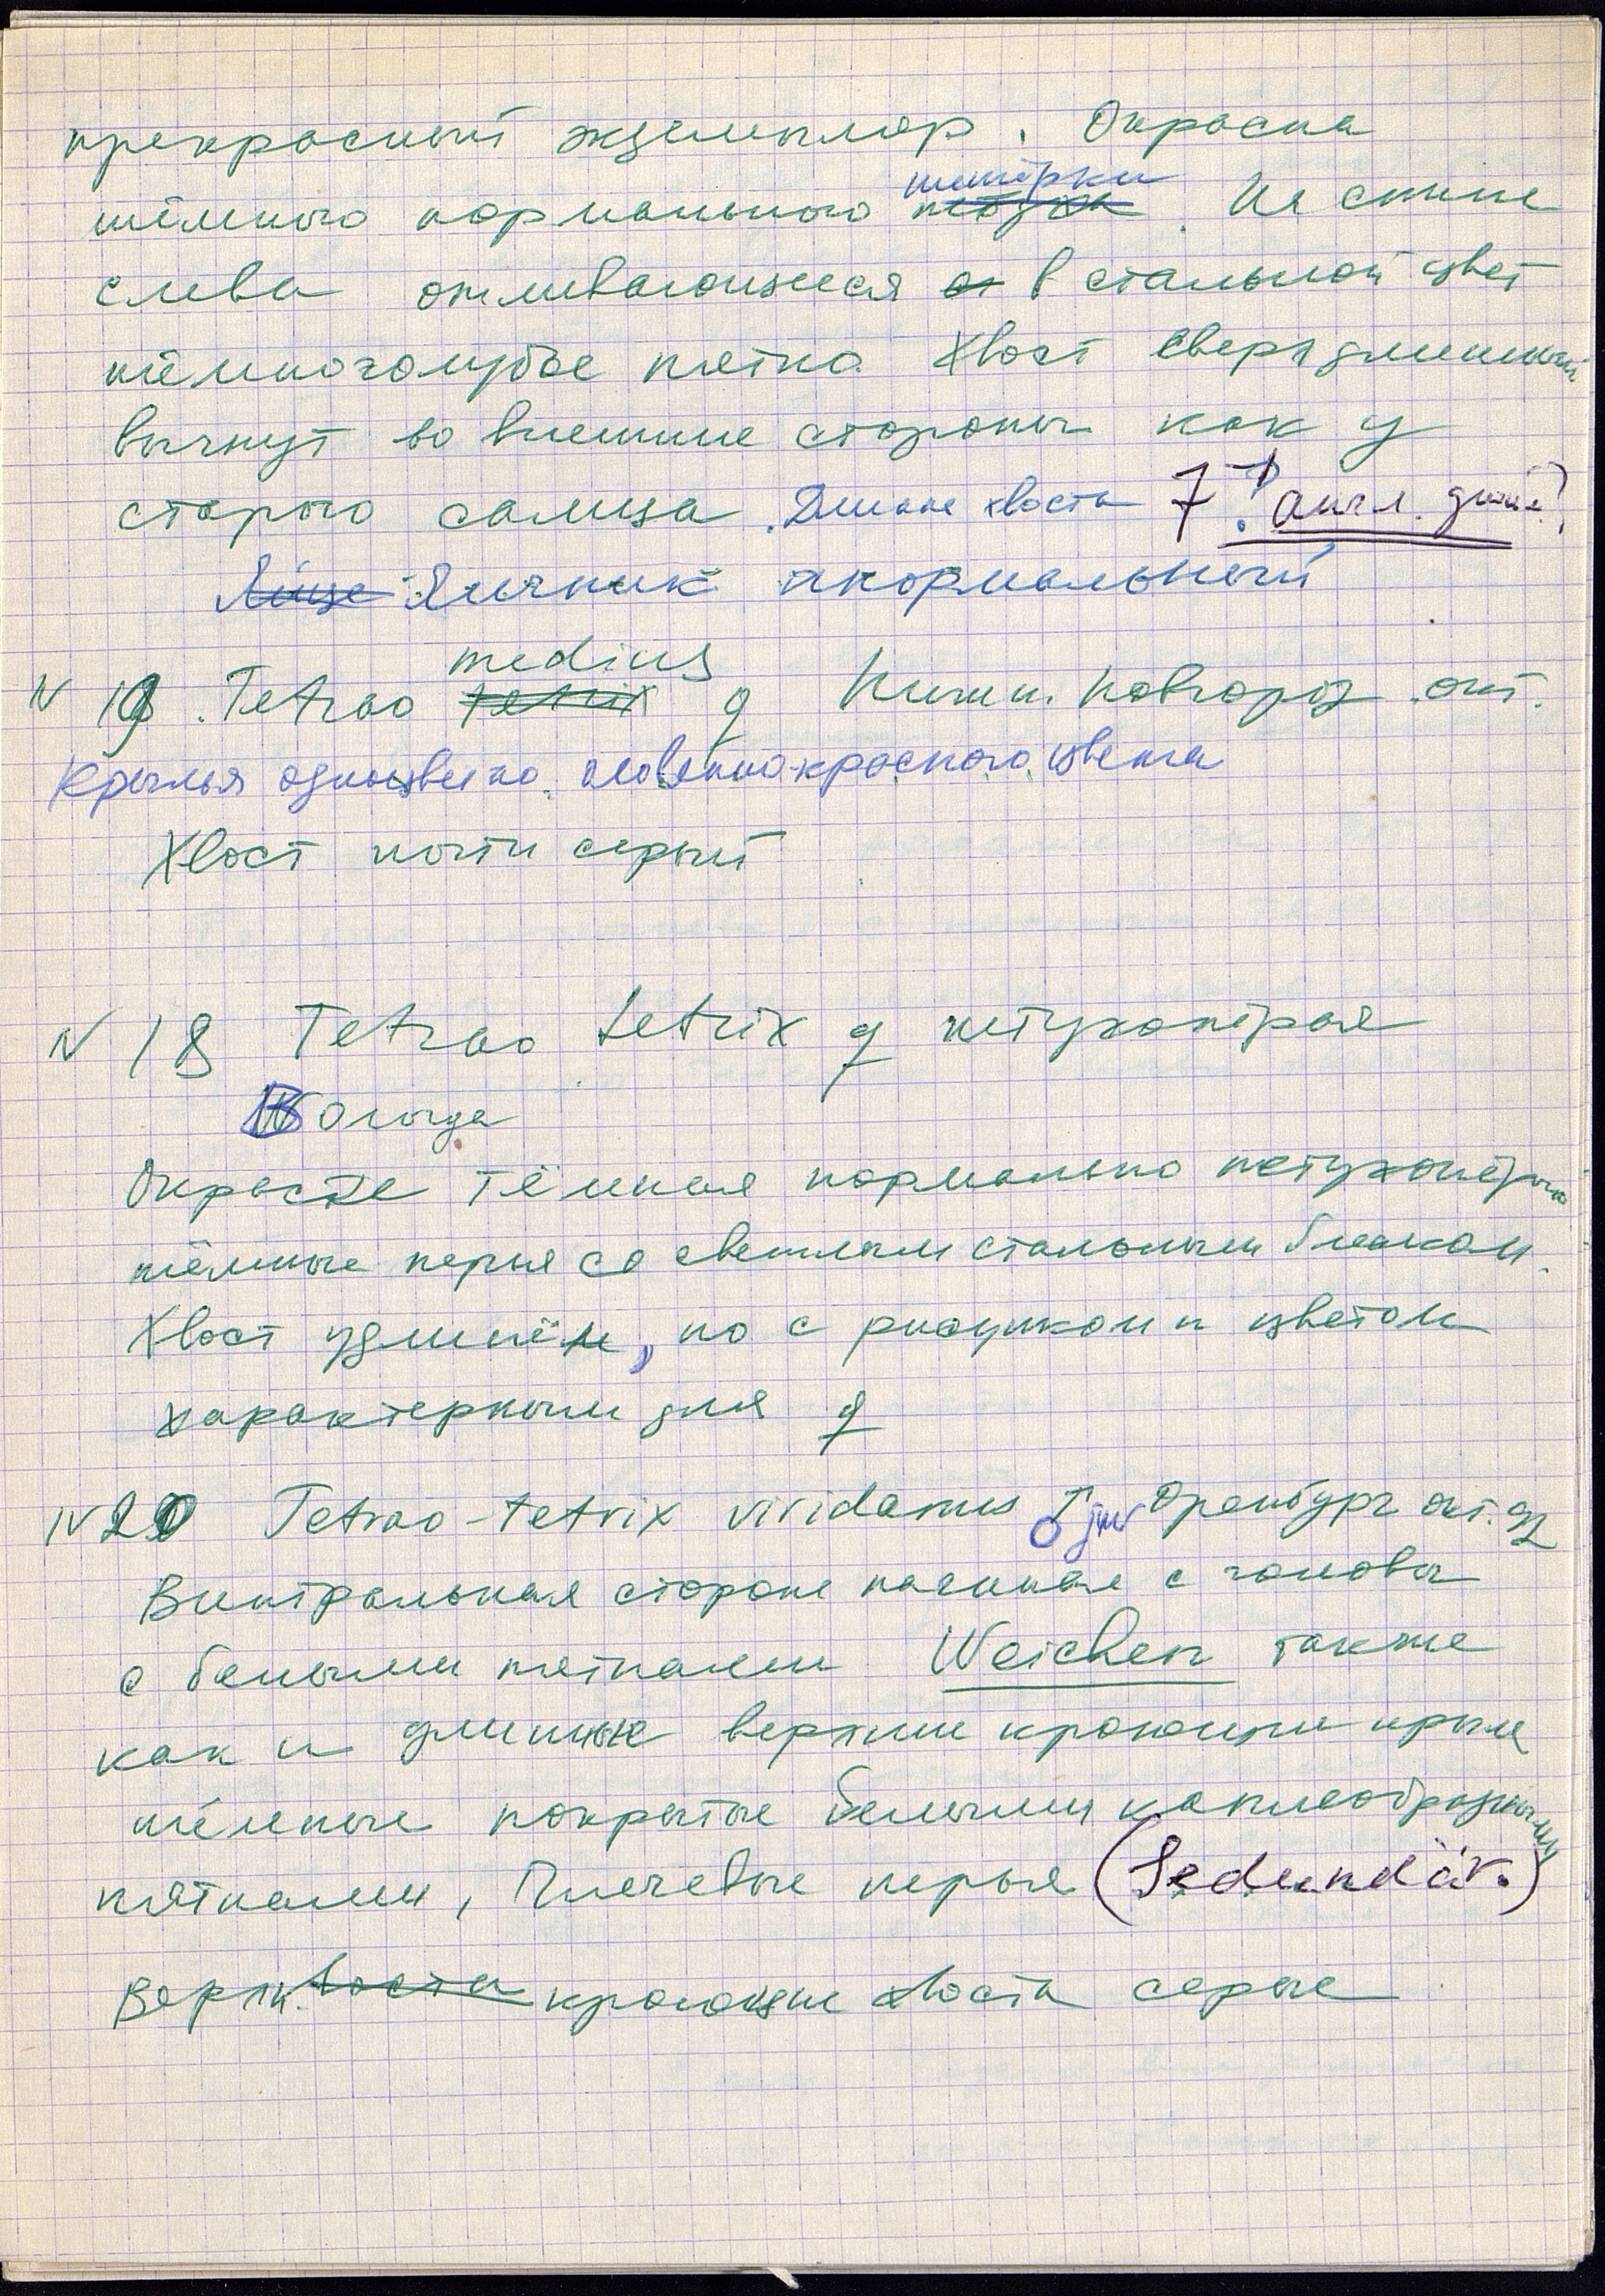 прекрасный экземпляр. Окраска
тетёрки
тёмного нормального На спине
слева отливающиеся в стальной цвет
тёмноголубые пятна Хвост сверхдлинный
выгнут во внешние стороны как у
старого самца. Длина хвоста 7"? англ. дюйм?
Яйце Яичник нормальный
medius
N 19. Tetrao tetrix ♀ Нижн. Новгород окт.
Крылья одноцветно красного цвета
Хвост почти серый
N 18 Tetrao tetrix ♀ петухопёрая
Вологда
Окраска тёмная нормально петухопёрая
тёмные перья со светлым стальным блеском.
Хвост удлинён, но с рисунком и цветом
характерным для ♀
N 20 Tetrao-tetrix viridanus ♂ juv Оренбург окт. 92
Вентральная сторона начиная с головы
с белыми пятнами Weichen также
как и длинные верхние кроющие крыла
тёмные покрытые белыми каплеобразными
пятнами, Плечевые перья (Sedundär.)
Верхн. хвоста кроющие хвоста серые